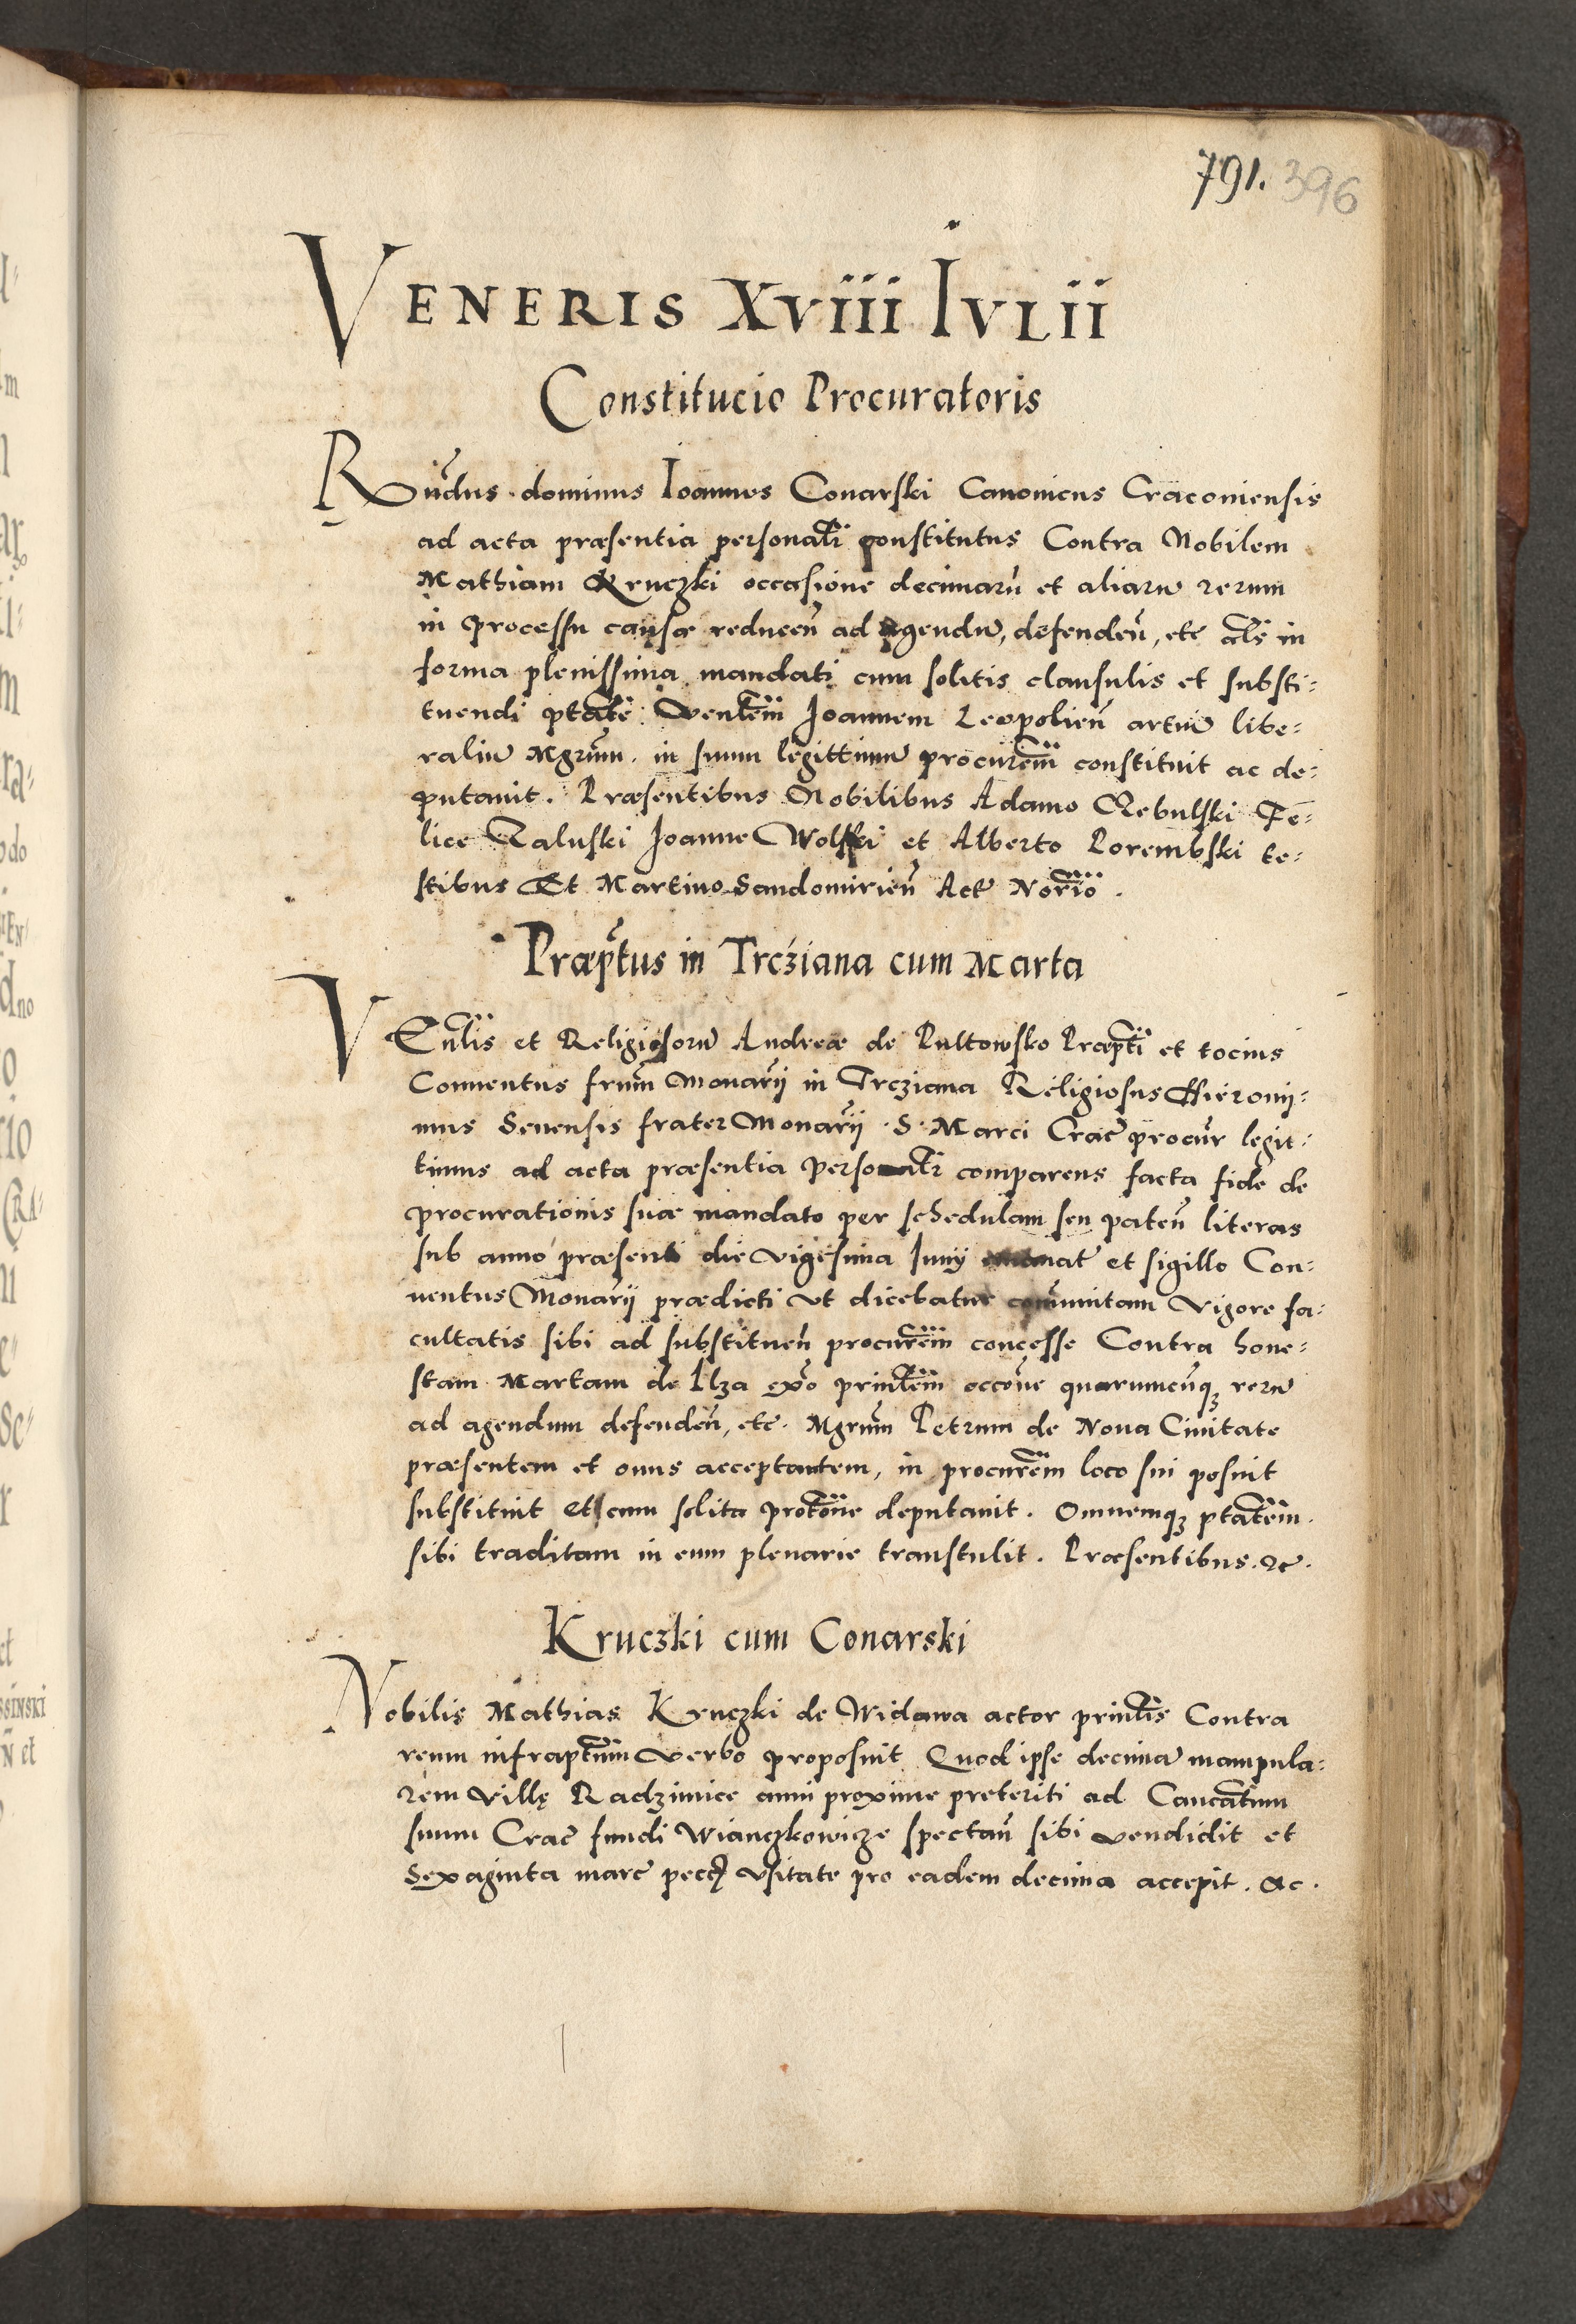 791. 396
VENERIS XVIII IVLII
Constitucio Procuratoris
Rñdus dominus Ioannes Conarski Canonicus Cracouiensis
ad acta præsentia personalr constitutus Contra Nobilem
Mathiam Kruczki occasione decimarũ et aliarũ rerum
in processu causæ reduceñ ad agendũ, defendeñ, etc als in
forma plenissima mandati cum solitis clausulis et substi-
tuendi ptate Ventem Ioannem Leopolieñ artiũ libe-
raliũ Mgrum in suum legittimũ procurem constituit ac de-
putauit. Præsentibus Nobilibus Adamo Rebulski Fe-
lice Zaluski Ioanne Wolski et Alberto Porembski te-
stibus Et Martino Sandomirieñ Act Norio.
Præptus in Trcziana cum Marta
VEnlis et Religiosorũ Andreæ de Pultowsko Præpti et tocius
Conuentus frum Monarij in Trcziana Religiosus Hieroni-
mus Senensis frater Monarij S. Marci Crac procur legit-
timus ad acta præsentia personalr comparens facta fide de
procurationis suæ mandato per schedulam seu pateñ literas
sub anno præsenti die vigesima Iunij emanat et sigillo Con-
uentus Monarij prædicti vt dicebatur comunitam Vigore fa-
cultatis sibi ad substitueñ procurem concesse Contra hone-
stam Martam de Ilza exo printem occone quarumcunqꝫ rerũ
ad agendum defendeñ, etc. Mgrum Petrum de Noua Ciuitate
præsentem et onus acceptantem, in procurem loco sui posuit
substituit et cum solita protone deputauit. Omnemqꝫ ptatem
sibi traditam in eum plenarie transtulit. Præsentibus. &c.
Kruczki cum Conarski
Nobilis Mathias Kruczki de Widawa actor printis Contra
reum infraptum verbo proposuit Quod ipse decimã manipula-
rem villę Radzimice anni proxime preteriti ad Cancatum
suum Crac fundi Wianczkowicze spectañ sibi vendidit et
Sexaginta marc pecć vsitate pro eadem decima accepit. &c.